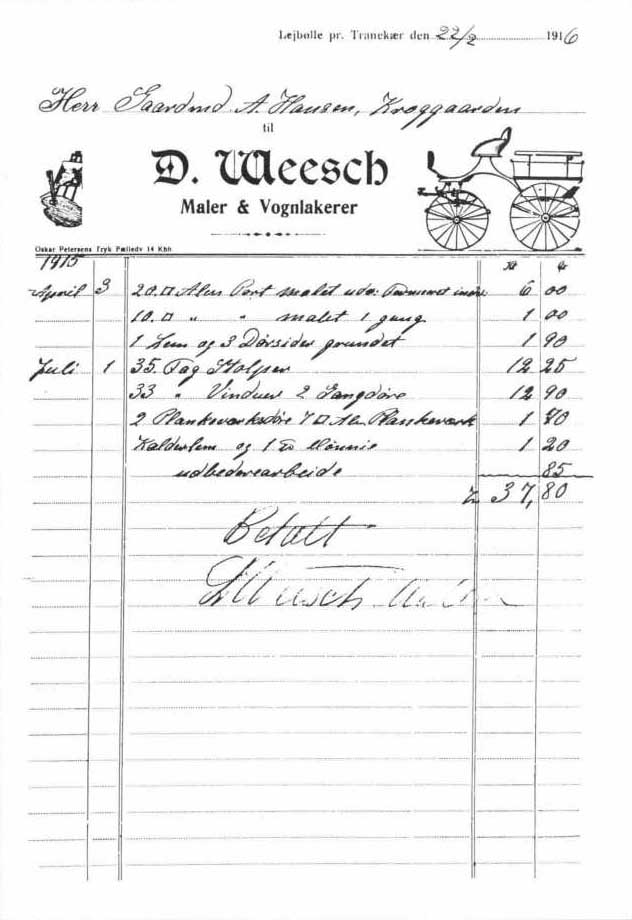 Lejbølle pr. Tranekær den 22/2 1916
Herr Gaardmd A. Hansen, Kroggaarden
til
D. Weesch
Maler & Vognlakerer
Oskar Petersens Tryk Pælledv 14 Kbh
1915 Kr Ør
April 3 20 □ Alen Port malet udv. 6 00
10 □ " " malet 1 gang 1 00
1 Lem og 3 Dørsider grundet 1 90
Juli 1 35 Fag Stolper 12 25
33 " Vinduer 2 Gangdøre 12 90
2 Planksværksdøre 7 □ Alen Plankeværk 1 70
Kalderlem og 1 Mønnie 1 20
udbederearbeide 85
Kr 37,80
Betalt
Weesch